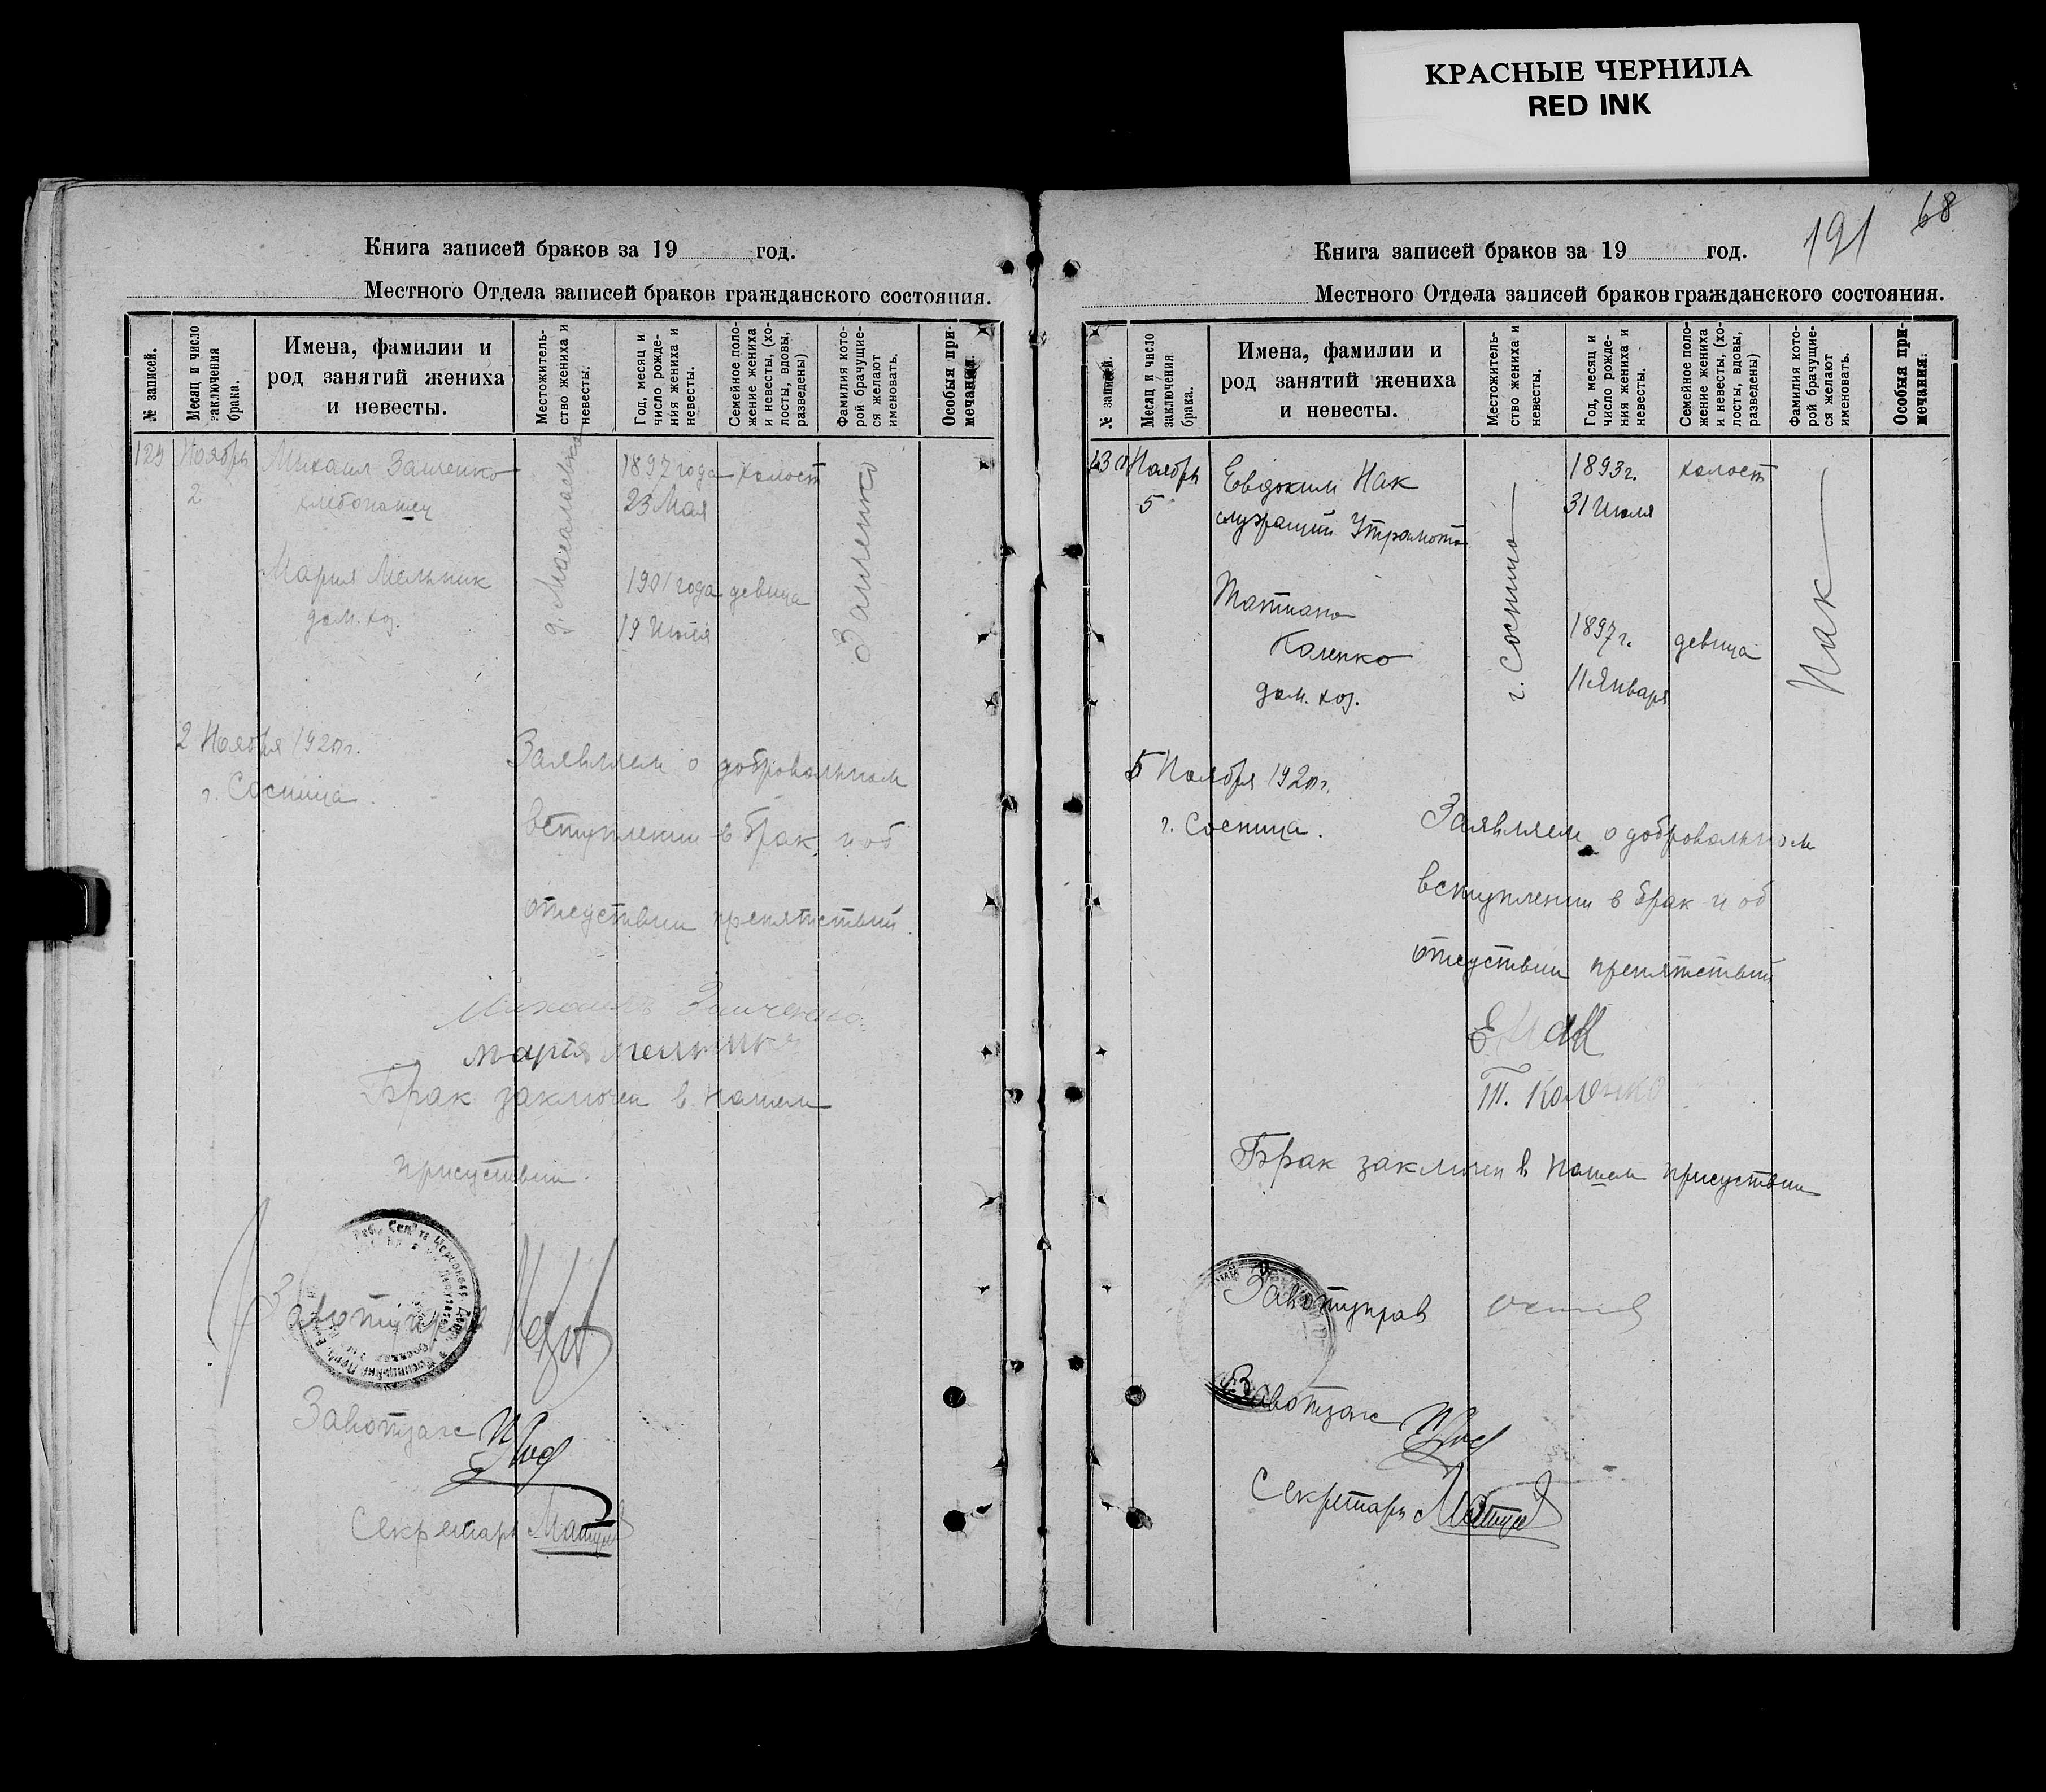 КРАСНЫЕ ЧЕРНИЛА
RED INK
Книга записей браков за 19 год.
Местного Отдела записей браков гражданского состояния.
№ записей.
Месяц и число заключения брака.
Имена, фамилии и
род занятий жениха
и невесты.
Местожитель-
ство жениха и
невесты.
Год, месяц и
число рожде-
ния жениха и
невесты.
Семейное поло-
жение жениха
и невесты, (хо-
лосты, вдовы,
разведены)
Фамилия кото-
рой брачущие-
ся желают
именовать.
Особыя при-
мечания.
129 Ноябрь Михаил Заиченко 1897 года холост
2 хлебопашец 23 Мая
Мария Мельник 1901 года девица
дом. хоз. 19 Июля
Заиченко
2 Ноября 1920 г.
г. Сосница.
Заявляем о добровольном
вступлении в брак и об
отсуствии препятствий.
Михаилъ Заиченко
Марія Мельник
Брак заключен в нашем
присуствии.
Завотупр
Завотзагс
Секретарь
191
68
Книга записей браков за 19 год.
Местного Отдела записей браков гражданского состояния.
№ записей.
Месяц и число
заключения
брака.
Имена, фамилии и
род занятий жениха
и невесты.
Местожитель-
ство жениха и
невесты.
Год, месяц и
число рожде-
ния жениха и
невесты.
Семейное поло-
жение жениха
и невесты, (хо-
лосты, вдовы,
разведены)
Фамилия кото-
рой брачущие-
ся желают
именовать.
Особыя при-
мечания.
130 Ноябрь Евдоким Нак 1893 г. холост
5 служащий 31 Июля
Татиана
Каленко 1897 г. девица
дом. хоз. 11 Января
г. Сосница
Нак
5 Ноября 1920 г.
г. Сосница.
Заявляем о добровольном
вступлении в брак и об
отсуствии препятствий
Е Нак
Т. Каленко
Брак заключен в нашем присуствии
Завотуправ
Завотзагс
Секретарь